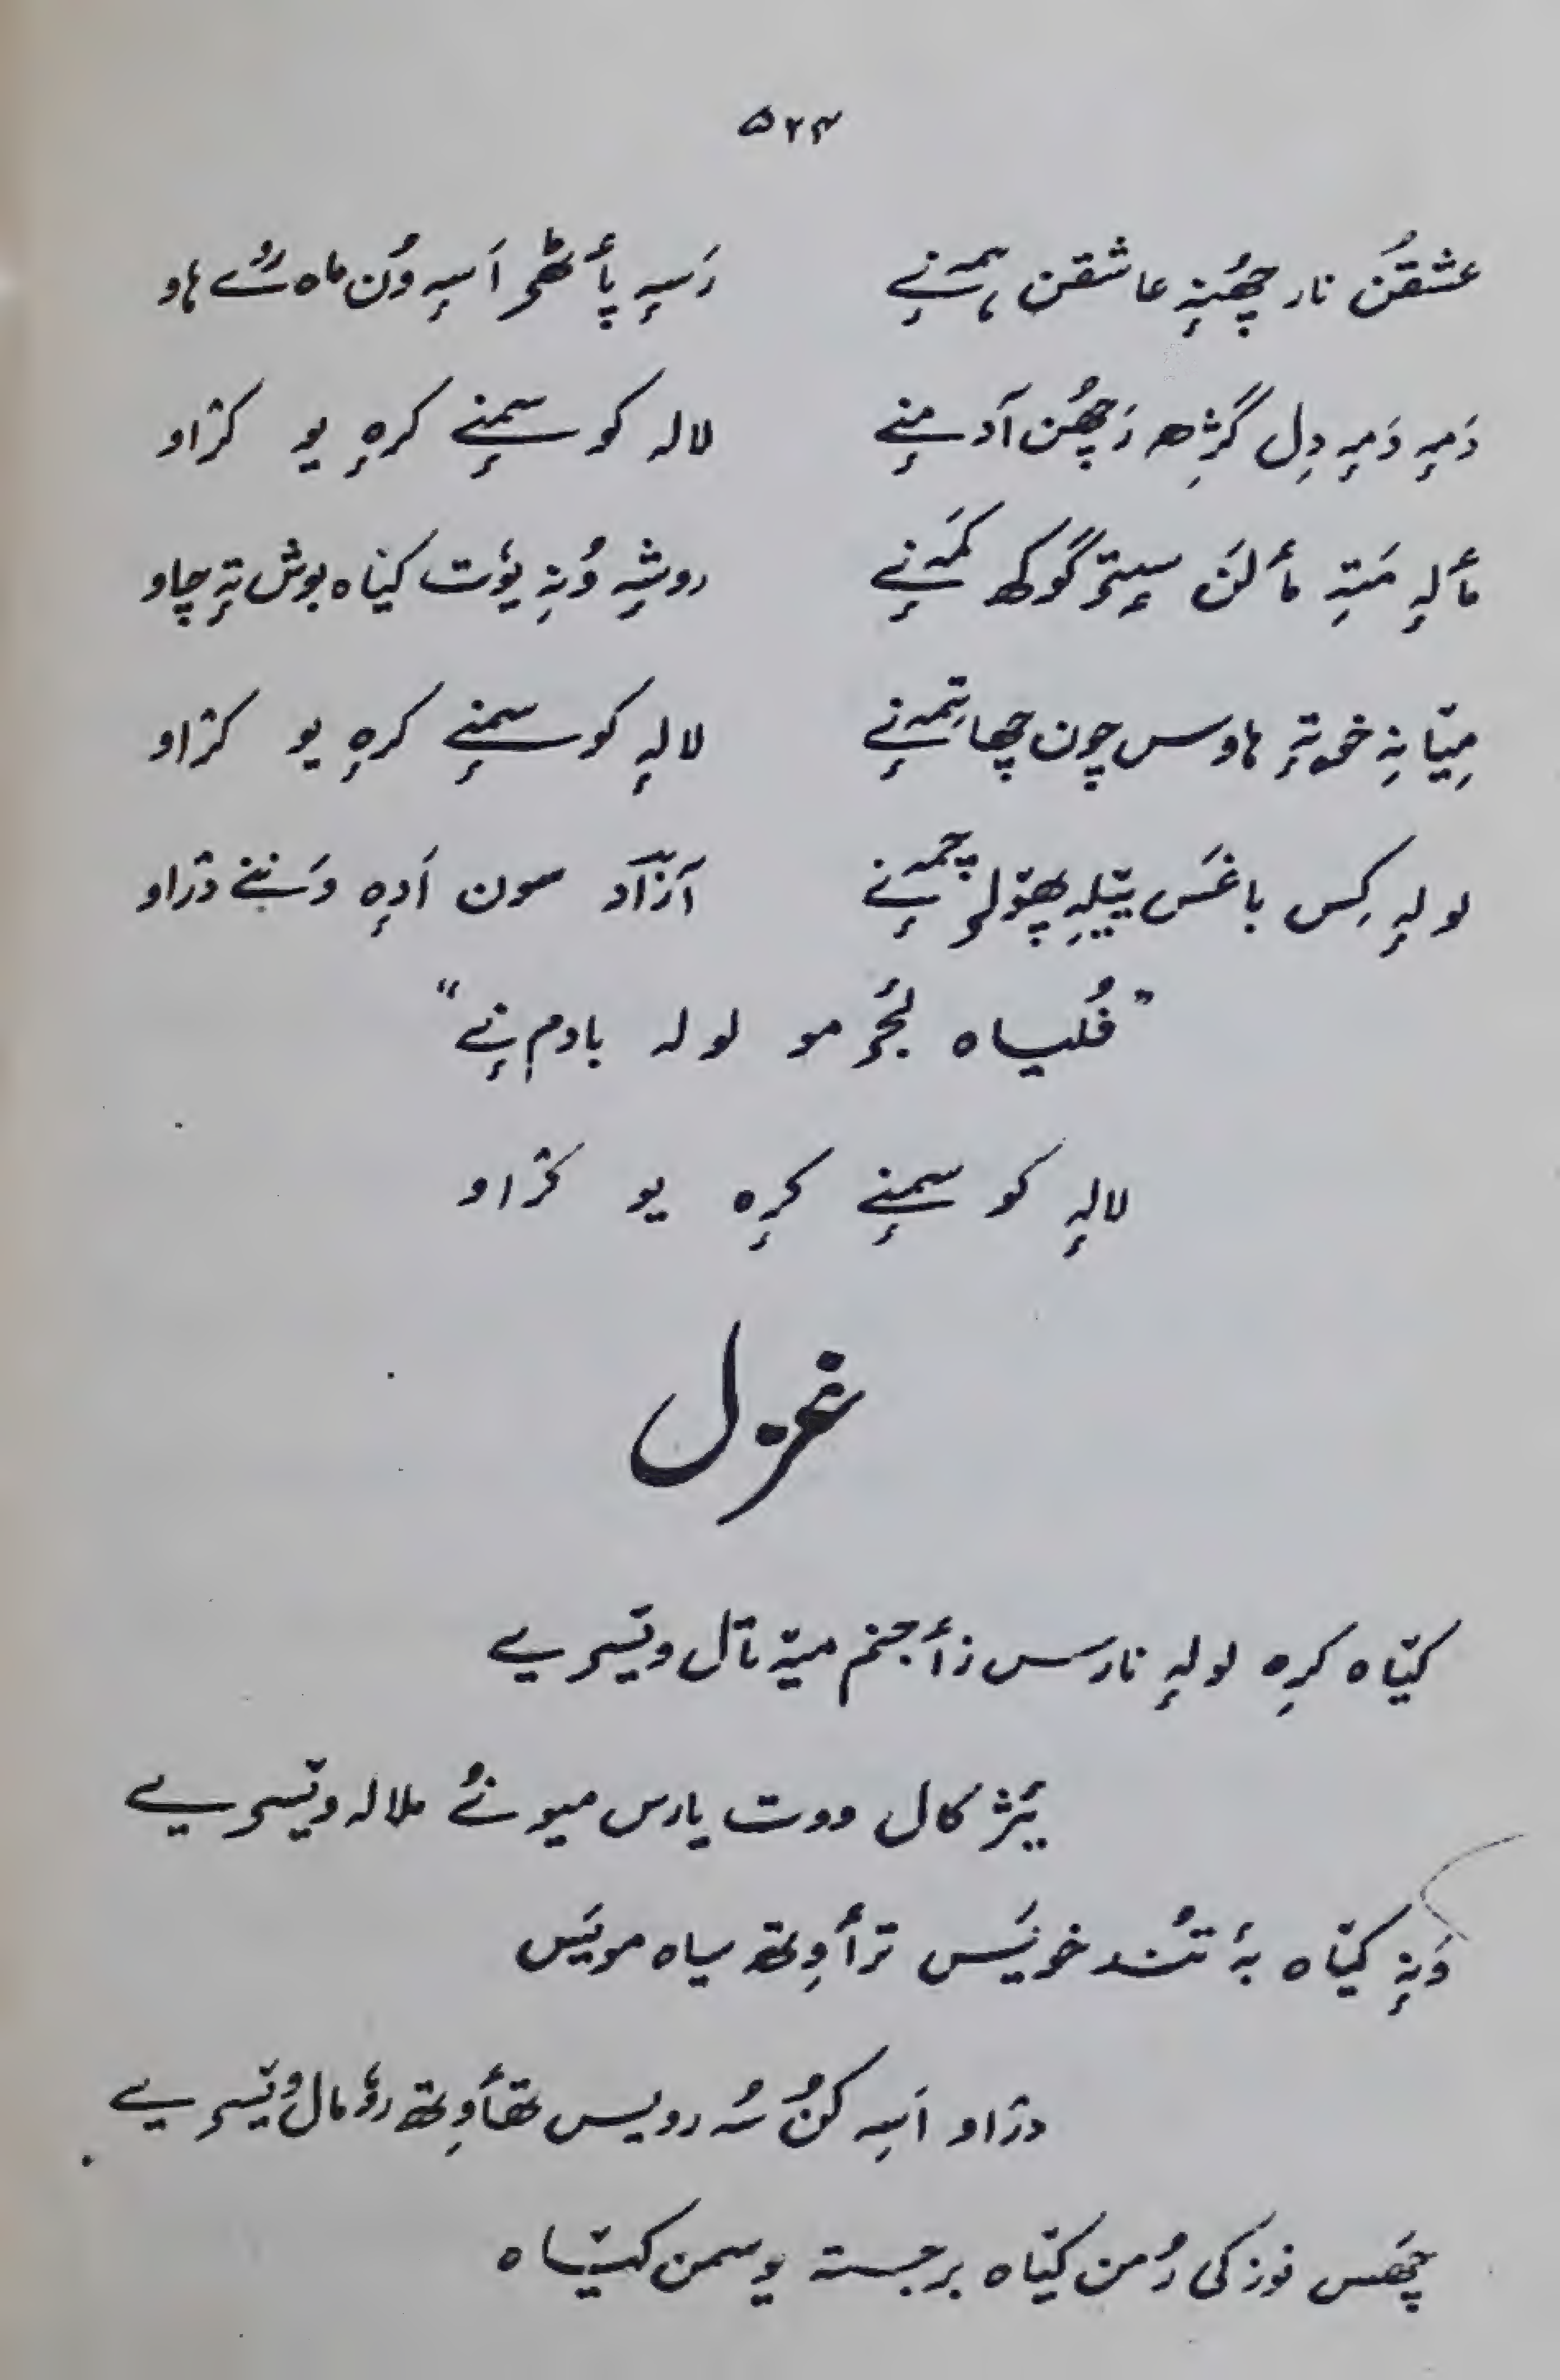 ۵۲۴
عشقُن نار چھُنہٕ عاشقن ہمہٕ نے رَسہٕ پأٹھۍ اَسہِ وُن ماہ رُے ہاو
دَمہٕ دَمہٕ دِل گژھِ رَچھُن آدمنےٚ لالہ کو سمنےٚ کرٕہ یو کژاو
مألہٕ مَتہِ مألَن سیتۍ گوکھ کَمہٕ نے روشہِ وُنہِ یوٗت کیاہ بوش تہٕ چاو
میٚانہِ خۅتہٕ ہاوس چون چھا تِمہٕ نے لالہٕ کو سمنےٚ کرٕہ یو کژاو
لولہٕ کِس باغَس ییٚلہِ پھۅلۍ چمہٕ نے آزاد سون اَدٕہ وَننے دژاو
”فُلیاہ لٔجۍ مو لولہ بادم نے“
لالہٕ کو سمنےٚ کرٕہ یو کژاو
غزل
کیٚاہ کرٕہ لولہٕ نارس زأجنم میٚہ نال ویٚسۍ یے
یٔژ کال ووت یارس میونُے ملالہ ویٚسۍ یے
وَنہٕ کیٚاہ بہٕ تُند خویَس ترٲوِتھ سیاہ مویَس
دژاو اَسہِ کُن سُہ رویس تھٲوِتھ روٗمال ویٚسۍ یے
چھَس نوزکی رُمن کیٚاہ برجستہ یوسمن کیٚاہ